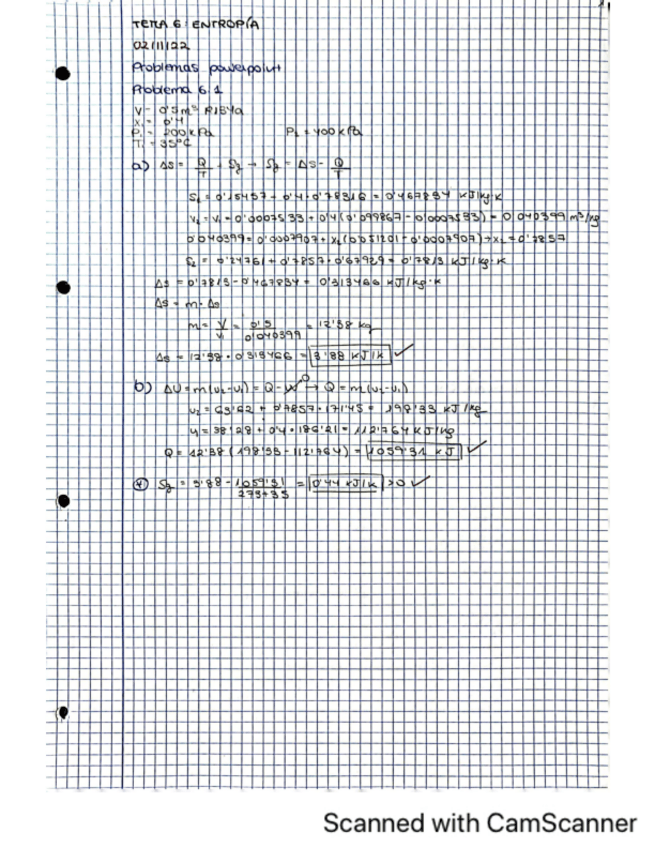 TEMA 6: ENTROPÍA
02/11/22
Problemas powerpoint
Problema 6.1
V = 0'5 m³ R134a
X₁ = 0'4
P₁ = 200 kPa P₂ = 400 kPa
T = 35°C
a) ΔS = Q/T + Sg → Sg = ΔS - Q/T
S₁ = 0'15457 + 0'4 · 0'78316 = 0'467834 kJ/kg·K
V₂ = V₁ = 0'0007533 + 0'4 (0'099867 - 0'0007533) = 0'040399 m³/kg
0'040399 = 0'0007907 + X₂ (0'051201 - 0'0007907) → X₂ = 0'7857
S₂ = 0'24761 + 0'7857 · 0'67929 = 0'7813 kJ/kg·K
Δs = 0'7813 - 0'467834 = 0'313466 kJ/kg·K
ΔS = m · Δs
m = V/V₁ = 0'5/0'040399 = 12'38 kg
ΔS = 12'38 · 0'313466 = 3'88 kJ/K ✓
b) ΔU = m(u₂-u₁) = Q - W⁰ → Q = m(u₂-u₁)
u₂ = 63'62 + 0'7857 · 171'45 = 198'33 kJ/kg
u₁ = 38'28 + 0'4 · 186'21 = 112'764 kJ/kg
Q = 12'38 (198'33 - 112'764) = 1059'31 kJ ✓
Sg = 3'88 - 1059'31/273+35 = 0'44 kJ/K > 0 ✓
Scanned with CamScanner